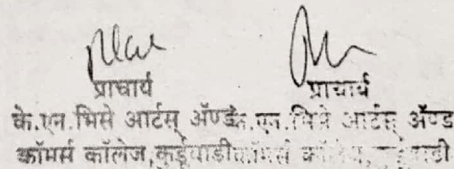 प्राचार्य प्राचार्य
के.एन.भिसे आर्टस् ॲण्ड के.एन.भिसे आर्टस् ॲण्ड
कॉमर्स कॉलेज,कुर्डूवाडी कॉमर्स कॉलेज,कुर्डूवाडी